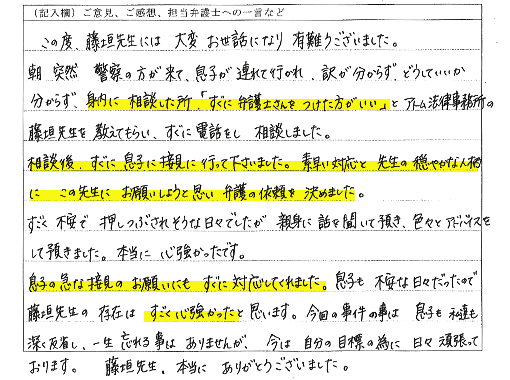 (記入欄)ご意見、ご感想、担当弁護士への一言など
この度、藤垣先生には 大変 お世話になり 有難うございました。
朝 突然 警察の方が来て、息子が 連れて行かれ、訳が分からず、どうしていいか
分からず、身内に 相談した所「すぐに 弁護士さんを つけた方がいい」と アトム法律事務所の
藤垣先生を 教えてもらい、すぐに 電話をし 相談しました。
相談後、すぐに 息子に 接見に 行って 下さいました。素早い対応と 先生の 穏やかな人柄
に この先生に お願いしようと思い 弁護の依頼を 決めました。
すごく 不安で 押しつぶされそうな日々でしたが 親身に 話を聞いて頂き、色々とアドバイスを
して頂きました。本当に 心強かったです。
息子の急な接見の お願いにも すぐに対応してくれました。息子も 不安な日々だったので
藤垣先生の 存在は すごく心強かったと 思います。今回の事件の事は 息子も 私達も
深く反省し、一生 忘れる事は ありませんが、今は 自分の 目標の為に 日々 頑張って
おります。 藤垣先生、本当に ありがとうございました。